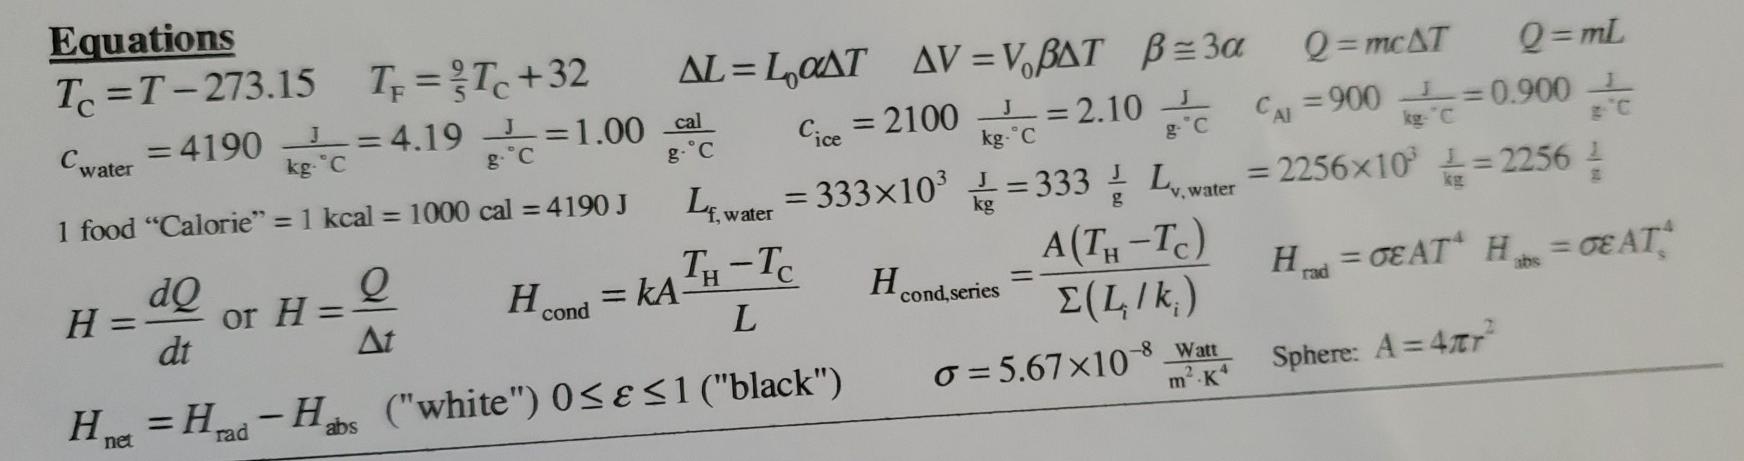 Equations
T_C = T − 273.15 T_F = 9/5 T_C + 32 ΔL = L_0 αΔT ΔV = V_0 βΔT β ≅ 3α Q = mcΔT Q = mL
c_water = 4190 J/kg·°C = 4.19 J/g·°C = 1.00 cal/g·°C c_ice = 2100 J/kg·°C = 2.10 J/g·°C c_Al = 900 J/kg·°C = 0.900 J/g·°C
1 food “Calorie” = 1 kcal = 1000 cal = 4190 J L_f, water = 333×10³ J/kg = 333 J/g L_v, water = 2256×10³ J/kg = 2256 J/g
H = dQ/dt or H = Q/Δt H_cond = kA (T_H − T_C)/L H_cond,series = A(T_H − T_C)/Σ(L_i / k_i) H_rad = σεAT⁴ H_abs = σεAT_s⁴
H_net = H_rad − H_abs ("white") 0 ≤ ε ≤ 1 ("black") σ = 5.67×10⁻⁸ Watt/m²·K⁴ Sphere: A = 4πr²